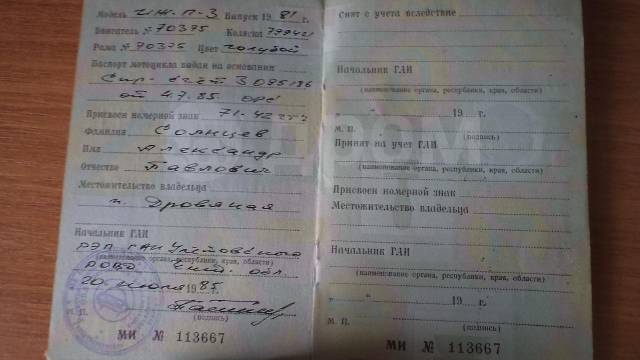 Модель ИЖ. П-3 Выпуск 19 81 г.
Двигатель № 70375 Коляска
Рама № 70375 Цвет голубой
Паспорт мотоцикла выдан на основании
Спр- счёт
от 4.7.85
Присвоен номерной знак 71-42
Фамилия Солнцев
Имя Александр
Отчество Павлович
Местожительство владельца
п. Дровяная
Начальник ГАИ
ГАИ Улётовского
(наименование органа, республики, края, области)
РОВД Чит. обл.
20 июля 1985
М. П.
(подпись)
МИ № 113667
Снят с учета вследствие
Начальник ГАИ
(наименование органа, республики, края, области)
" " 19 г.
М. П. (подпись)
Принят на учет ГАИ
(наименование органа, республики, края, области)
Присвоен номерной знак
Местожительство владельца
Начальник ГАИ
(наименование органа, республики, края, области)
" " 19 г.
М. П. (подпись)
МИ № 113667